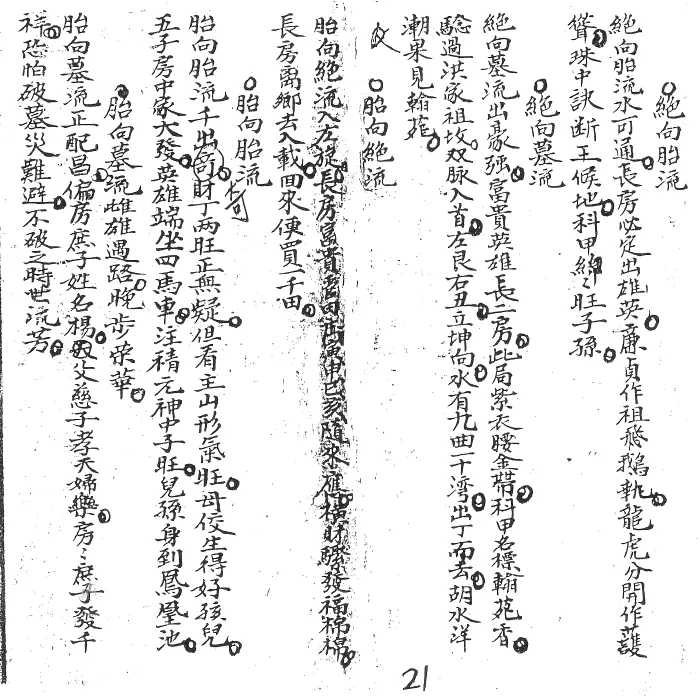 絶向胎流
絶向胎流水可通長房必定出雄英廉貞作祖飛鵝執龍虎分開作護
聳珠中訣斷王候地科甲綿〻旺子孫
絶向墓流
絶向墓流出豪强富貴英雄長二房此局紫衣腰金帶科甲名標翰苑香
驗過洪家祖坟双脉入首左艮右丑立坤向水有九曲十湾出丁而去胡水洋
潮果見翰苑
胎向絶流
胎向絶流入方旋長房富貴置田寅申巳亥隨來應橫財驟發福綿綿
長房离鄉去入載回來便買一千田
胎向胎流
胎向胎流千出奇財丁两旺正無疑但看主山形氣旺母佼生得好孩兒
奇
五子房中家大發英雄端坐四馬車注積元神中子旺兒孫身到鳳凰池
胎向墓流雌雄遇路晚步荣華
胎向墓流正配昌偏房庶子姓名楊父慈子孝夫婦樂房〻庶子發千
祥恐怕破墓災難避不破之時世流芳
21